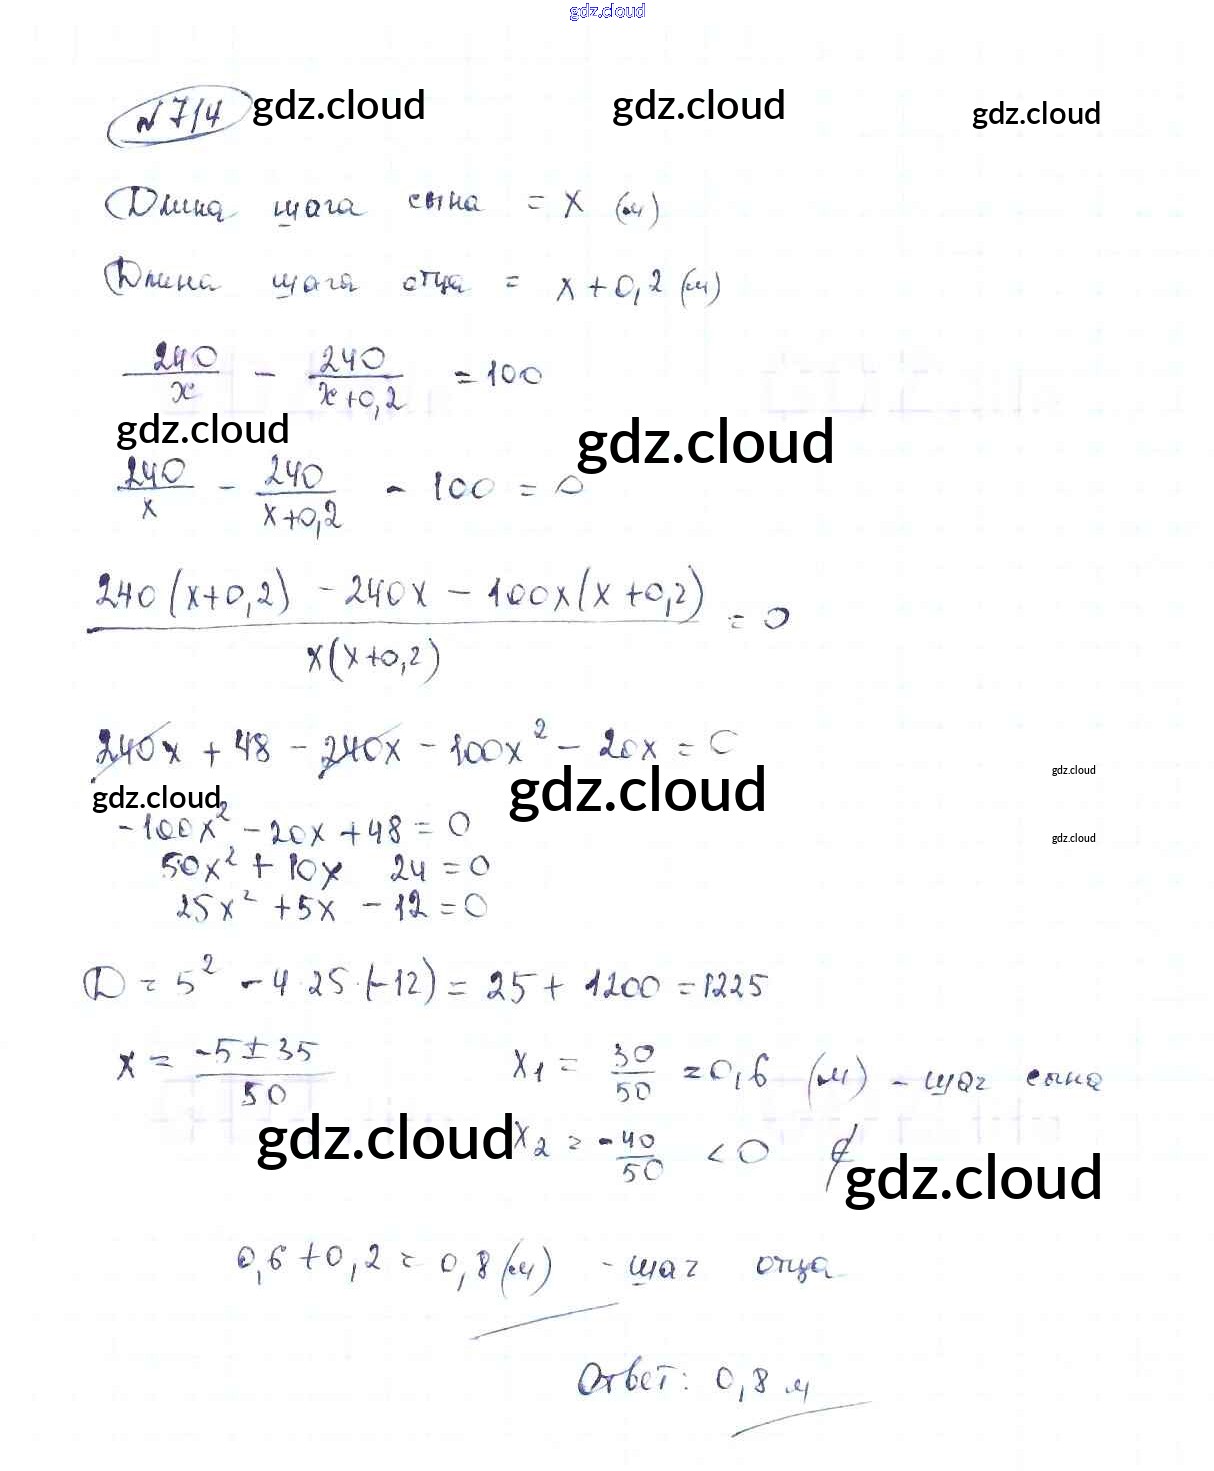 gdz.cloud
№ 714 gdz.cloud gdz.cloud gdz.cloud
Длина шага сына = x (м)
Длина шага отца = x + 0,2 (м)
240/x - 240/(x+0,2) = 100
gdz.cloud gdz.cloud
240/x - 240/(x+0,2) - 100 = 0
(240(x+0,2) - 240x - 100x(x+0,2))/(x(x+0,2)) = 0
240x + 48 - 240x - 100x² - 20x = 0
gdz.cloud gdz.cloud gdz.cloud
-100x² - 20x + 48 = 0
gdz.cloud
50x² + 10x 24 = 0
25x² + 5x - 12 = 0
D = 5² - 4·25·(-12) = 25 + 1200 = 1225
x = (-5 ± 35)/50 x₁ = 30/50 = 0,6 (м) - шаг сына
gdz.cloud x₂ = -40/50 < 0 ∉
gdz.cloud
0,6 + 0,2 = 0,8 (м) - шаг отца
Ответ: 0,8 м